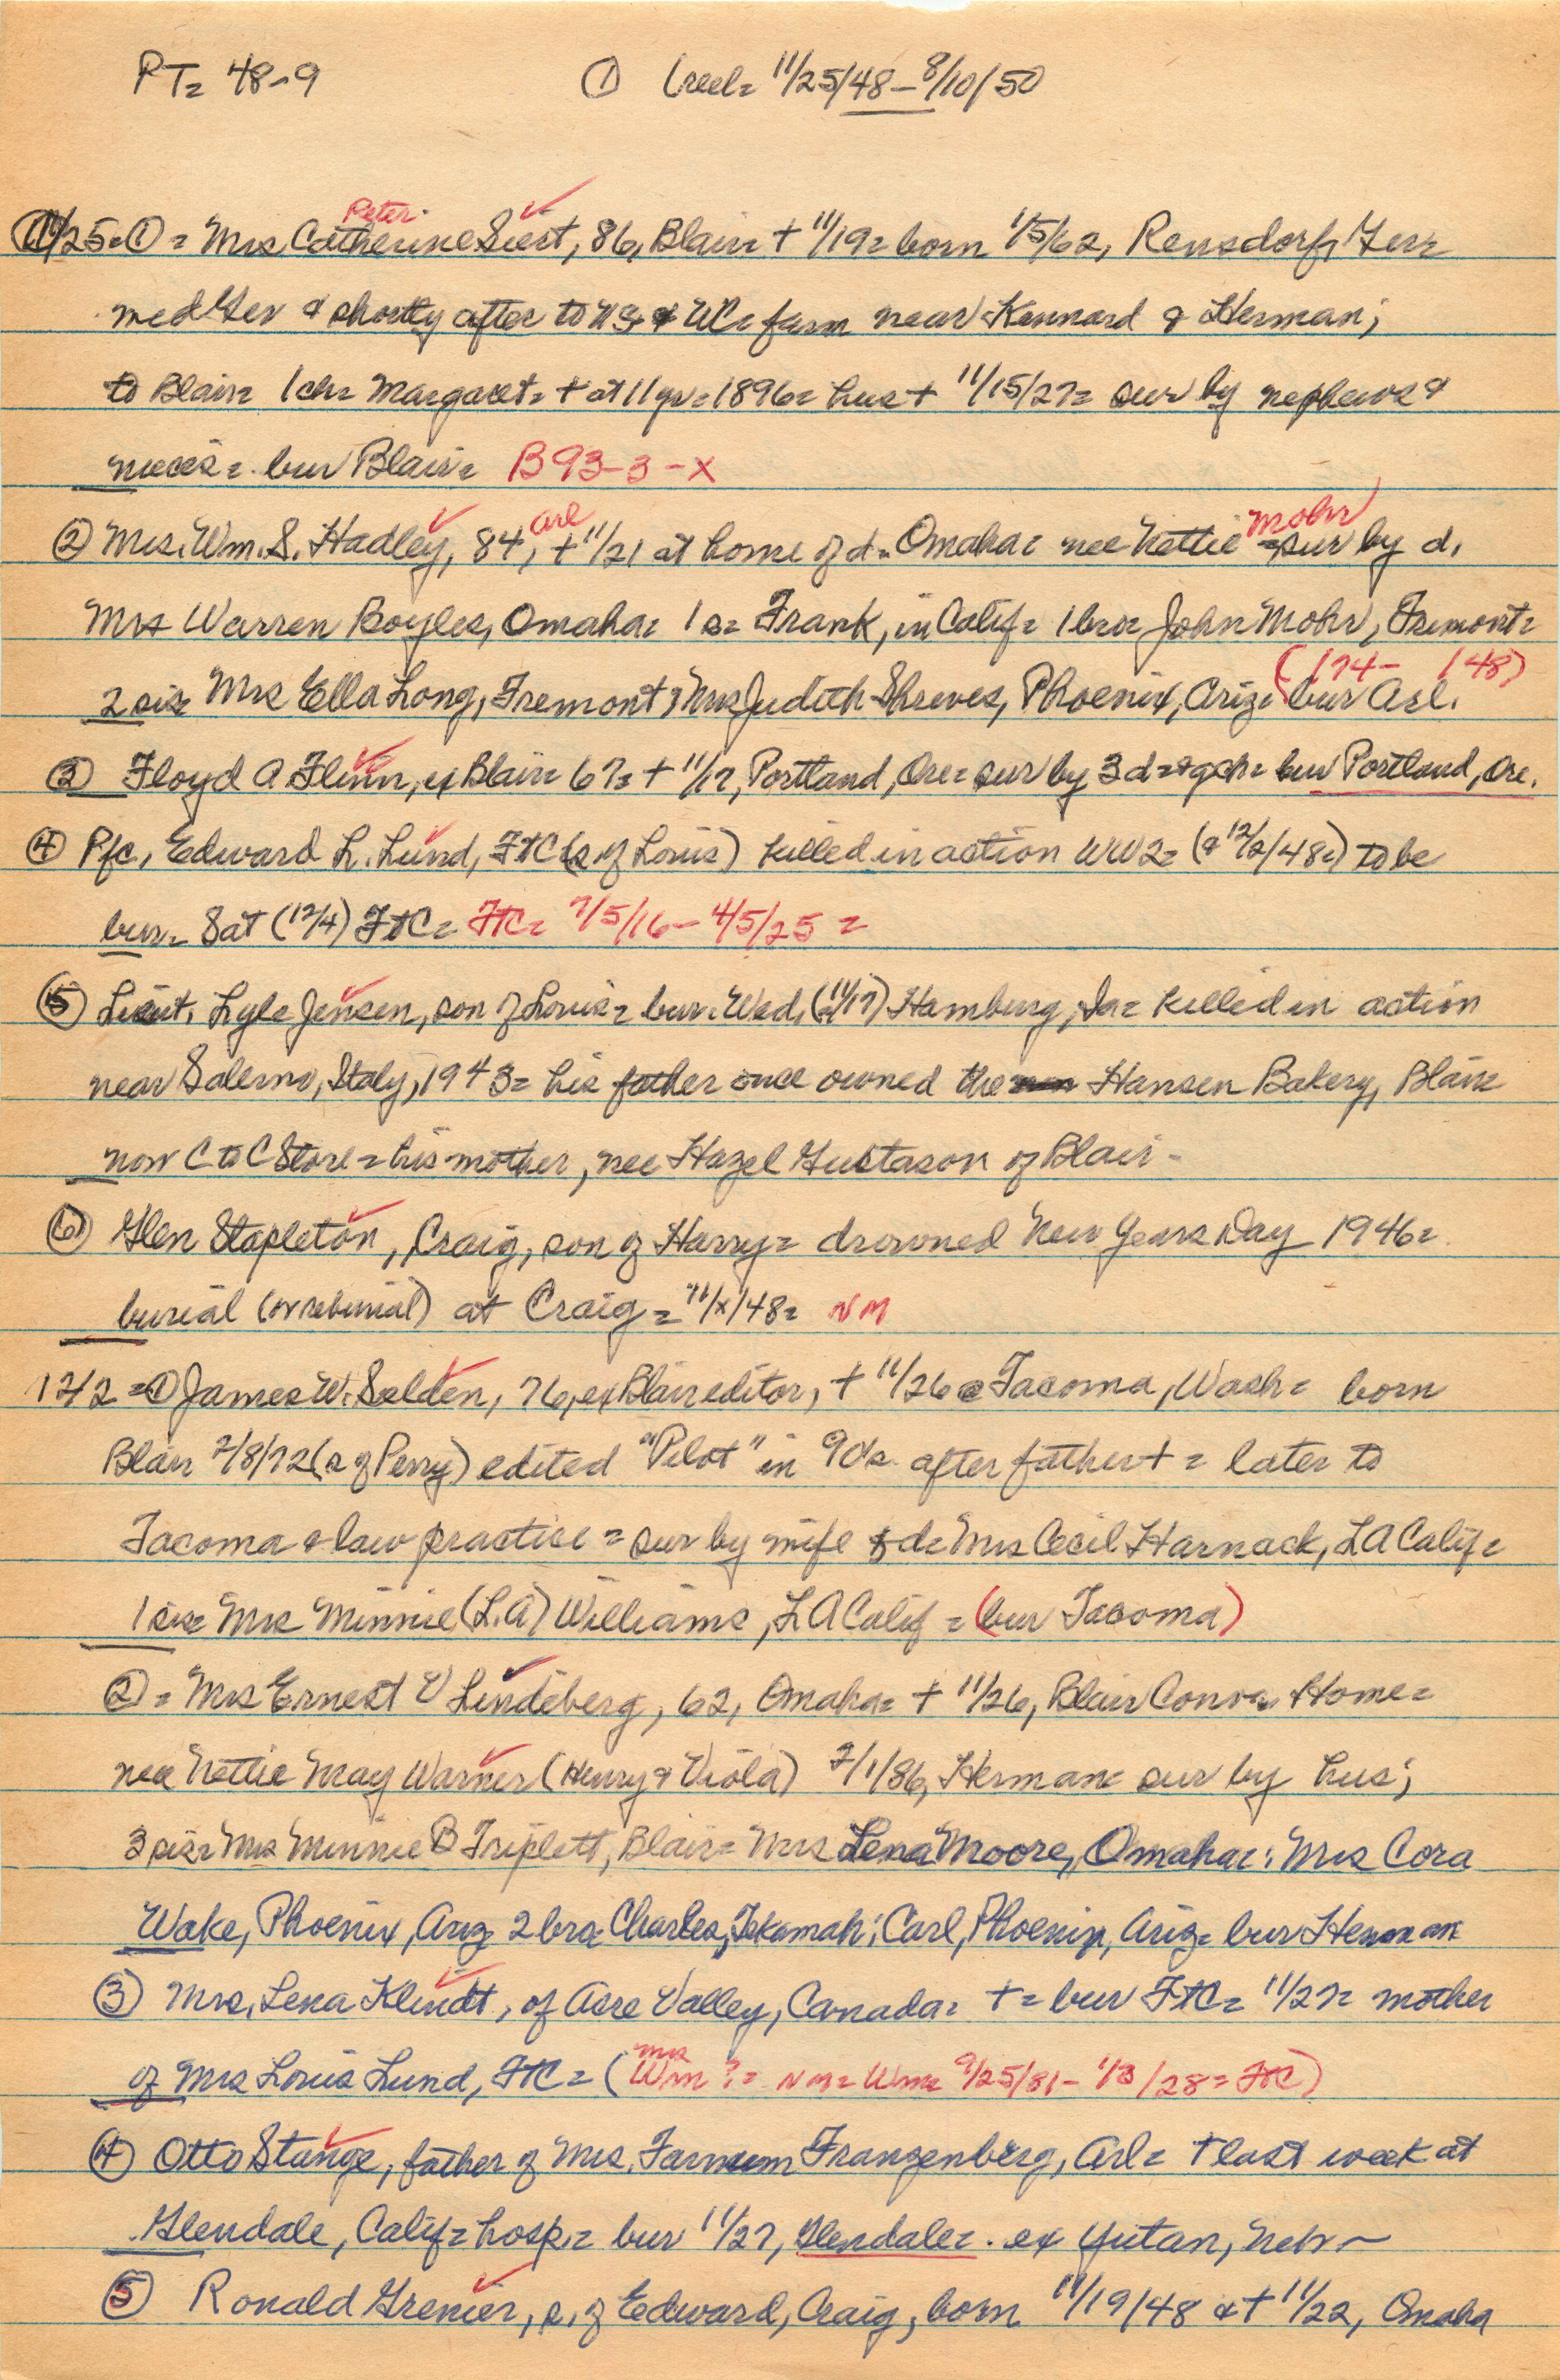 PT= 48-9 ① (reel= 11/25/48-8/10/50
Peter
11/25=① = Mrs Catherine Siert, 86, Blair= + 11/19= born 1/5/62, Rensdorf, Ger=
med Ger & shortly after to US & WC= farm near Kennard & Herman;
to Blair= 1 ch= Margaret= + at 11 yr= 1896= hus + 11/15/27= sur by nephews &
nieces= bur Blair= B93-3-X
② Mrs. Wm. S. Hadley, 84, Arl + 11/21 at home of d= Omaha= nee Nettie Mohr = sur by d.
Mrs Warren Boyles, Omaha= 1 s= Frank, in Calif= 1 bro= John Mohr, Fremont=
2 sis= Mrs Ella Long, Fremont; Mrs Judith Shreves, Phoenix, Ariz= bur Arl. (174- 148)
③ Floyd A Flinn, ex Blair= 67= + 11/17, Portland, Ore= sur by 3 d= + gch= bur Portland, Ore.
④ Pfc, Edward L. Lund, FtC (s of Louis) killed in action WW2= (& 12/2/48=) to be
bur= Sat (12/4) FtC= FtC= 7/5/16- 4/5/25 =
⑤ Lieut. Lyle Jensen, son of Louis= bur. Wed, (11/17) Hamburg, Ia= killed in action
near Salerno, Italy, 1943= his father once owned the Hansen Bakery, Blair=
now C to C Store= his mother, nee Hazel Gustason of Blair-
⑥ Glen Stapleton, Craig, son of Harry= drowned New Years Day 1946=
burial (or reburial) at Craig= 11/x/48= NM
12/2 =① James W. Selden, 76, ex Blair editor, + 11/26 @ Tacoma, Wash= born
Blair 2/8/72 (s of Perry) edited "Pilot" in 90's after father + = later to
Tacoma & law practice = sur by wife & d= Mrs Cecil Harnack, LA Calif=
1 sis= Mrs Minnie (L.A) Williams, LA Calif = (bur Tacoma)
② = Mrs Ernest V Lindeberg, 62, Omaha= + 11/26, Blair Conva. Home=
nee Nettie May Warner (Henry & Viola) 2/1/86, Herman= sur by hus;
3 sis= Mrs Minnie B Triplett, Blair= Mrs Lena Moore, Omaha=; Mrs Cora
Wake, Phoenix, Ariz 2 bro= Charles, Tekamah; Carl, Phoenix, Ariz= bur Herman
③ Mrs. Lena Klindt, of Acre Valley, Canada= += bur FtC= 11/27= mother
of Mrs Louis Lund, FtC= (Mrs Wm ?= NM= Wm= 9/25/81- 1/3/28= FtC)
④ Otto Stange, father of Mrs. Farnum Frangenberg, Arl= + last week at
Glendale, Calif= hosp.= bur 11/27, Glendale= . ex Yutan, Nebr-
⑤ Ronald Grenier, s. of Edward, Craig, born 11/19/48 & + 11/22, Omaha